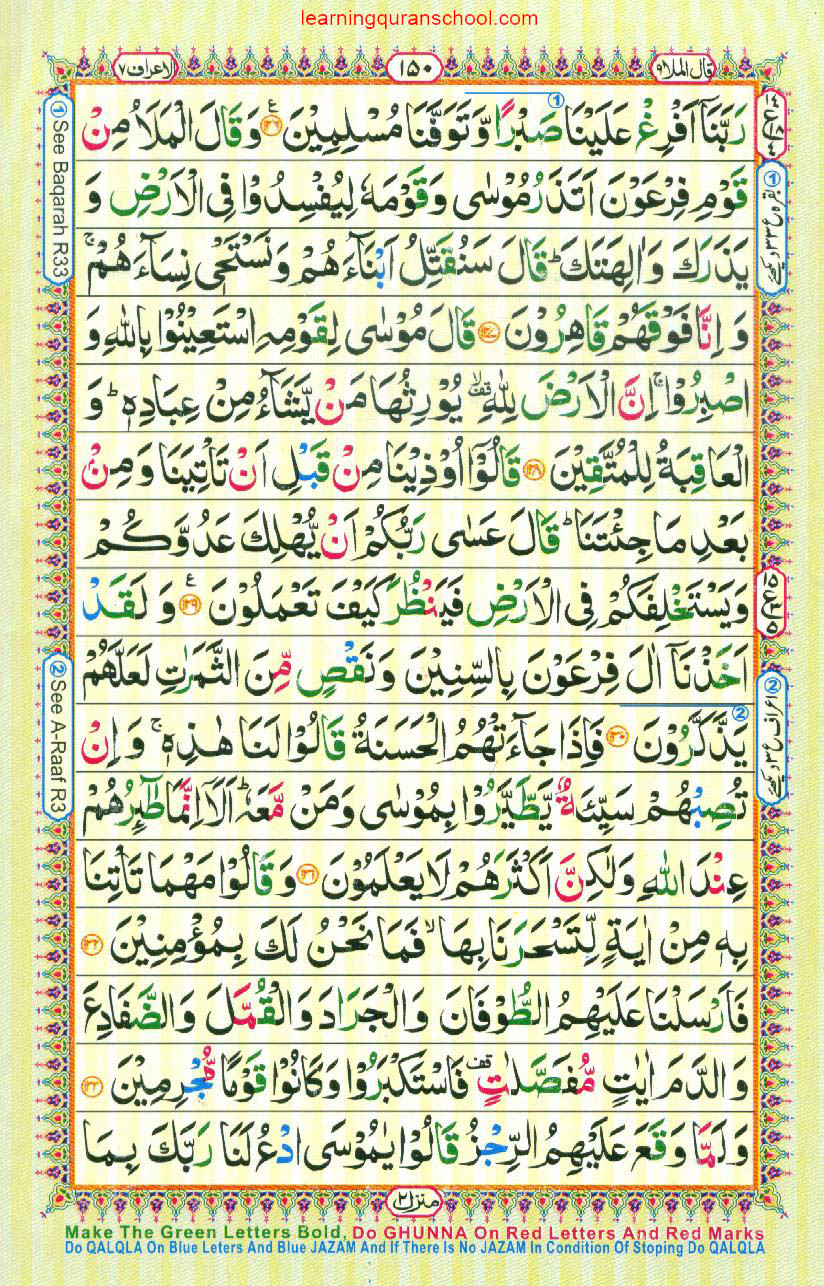 learningquranschool.com
قال الملاٴ ۹
۱۵۰
الاعراف ۷
رَبَّنَاۤ اَفْرِغْ عَلَیْنَا صَبْرًا وَّ تَوَفَّنَا مُسْلِمِیْنَ ﴿۱۲۶﴾ۧ وَ قَالَ الْمَلَاُ مِنْ
قَوْمِ فِرْعَوْنَ اَتَذَرُ مُوْسٰی وَ قَوْمَهٗ لِیُفْسِدُوْا فِی الْاَرْضِ وَ
یَذَرَكَ وَ اٰلِهَتَكَ ؕ قَالَ سَنُقَتِّلُ اَبْنَآءَهُمْ وَ نَسْتَحْیٖ نِسَآءَهُمْ ۚ
وَ اِنَّا فَوْقَهُمْ قَاهِرُوْنَ ﴿۱۲۷﴾ قَالَ مُوْسٰی لِقَوْمِهِ اسْتَعِیْنُوْا بِاللّٰهِ وَ
اصْبِرُوْا ۚ اِنَّ الْاَرْضَ لِلّٰهِ ۙ۫ یُوْرِثُهَا مَنْ یَّشَآءُ مِنْ عِبَادِهٖ ؕ وَ
الْعَاقِبَةُ لِلْمُتَّقِیْنَ ﴿۱۲۸﴾ قَالُوْۤا اُوْذِیْنَا مِنْ قَبْلِ اَنْ تَاْتِیَنَا وَ مِنْۢ
بَعْدِ مَا جِئْتَنَا ؕ قَالَ عَسٰی رَبُّكُمْ اَنْ یُّهْلِكَ عَدُوَّكُمْ
وَ یَسْتَخْلِفَكُمْ فِی الْاَرْضِ فَیَنْظُرَ كَیْفَ تَعْمَلُوْنَ ﴿۱۲۹﴾ۧ وَ لَقَدْ
اَخَذْنَاۤ اٰلَ فِرْعَوْنَ بِالسِّنِیْنَ وَ نَقْصٍ مِّنَ الثَّمَرٰتِ لَعَلَّهُمْ
یَذَّكَّرُوْنَ ﴿۱۳۰﴾ فَاِذَا جَآءَتْهُمُ الْحَسَنَةُ قَالُوْا لَنَا هٰذِهٖ ۚ وَ اِنْ
تُصِبْهُمْ سَیِّئَةٌ یَّطَّیَّرُوْا بِمُوْسٰی وَ مَنْ مَّعَهٗ ؕ اَلَاۤ اِنَّمَا طٰٓئِرُهُمْ
عِنْدَ اللّٰهِ وَ لٰكِنَّ اَكْثَرَهُمْ لَا یَعْلَمُوْنَ ﴿۱۳۱﴾ وَ قَالُوْا مَهْمَا تَاْتِنَا
بِهٖ مِنْ اٰیَةٍ لِّتَسْحَرَنَا بِهَا ۙ فَمَا نَحْنُ لَكَ بِمُؤْمِنِیْنَ ﴿۱۳۲﴾
فَاَرْسَلْنَا عَلَیْهِمُ الطُّوْفَانَ وَ الْجَرَادَ وَ الْقُمَّلَ وَ الضَّفَادِعَ
وَ الدَّمَ اٰیٰتٍ مُّفَصَّلٰتٍ ۫ فَاسْتَكْبَرُوْا وَ كَانُوْا قَوْمًا مُّجْرِمِیْنَ ﴿۱۳۳﴾
وَ لَمَّا وَقَعَ عَلَیْهِمُ الرِّجْزُ قَالُوْا یٰمُوْسَی ادْعُ لَنَا رَبَّكَ بِمَا
منزل ۲
① See Baqarah R33
② See A-Raaf R3
Make The Green Letters Bold, Do GHUNNA On Red Letters And Red Marks
Do QALQLA On Blue Leters And Blue JAZAM And If There Is No JAZAM In Condition Of Stoping Do QALQLA